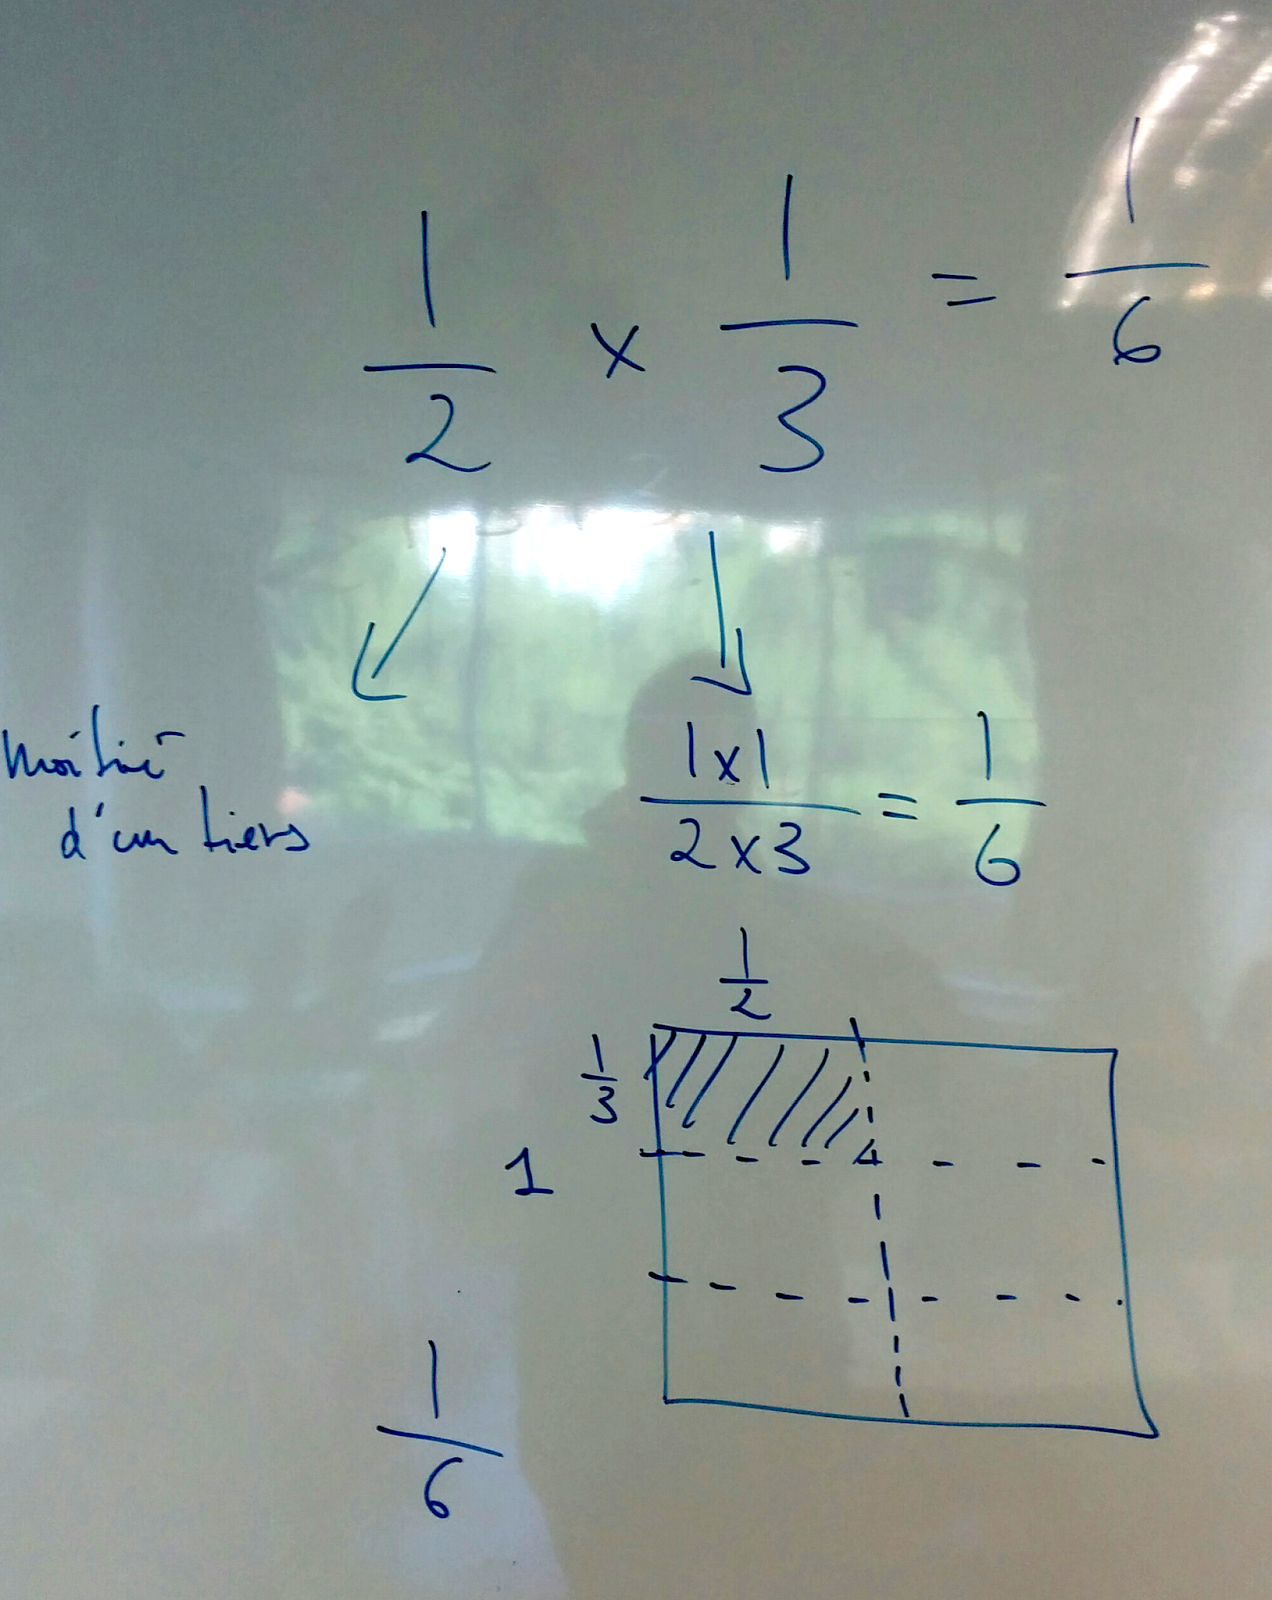 1/2 x 1/3 = 1/6
moitié
d'un tiers
1x1/2x3 = 1/6
1/2
1/3
1
1/6